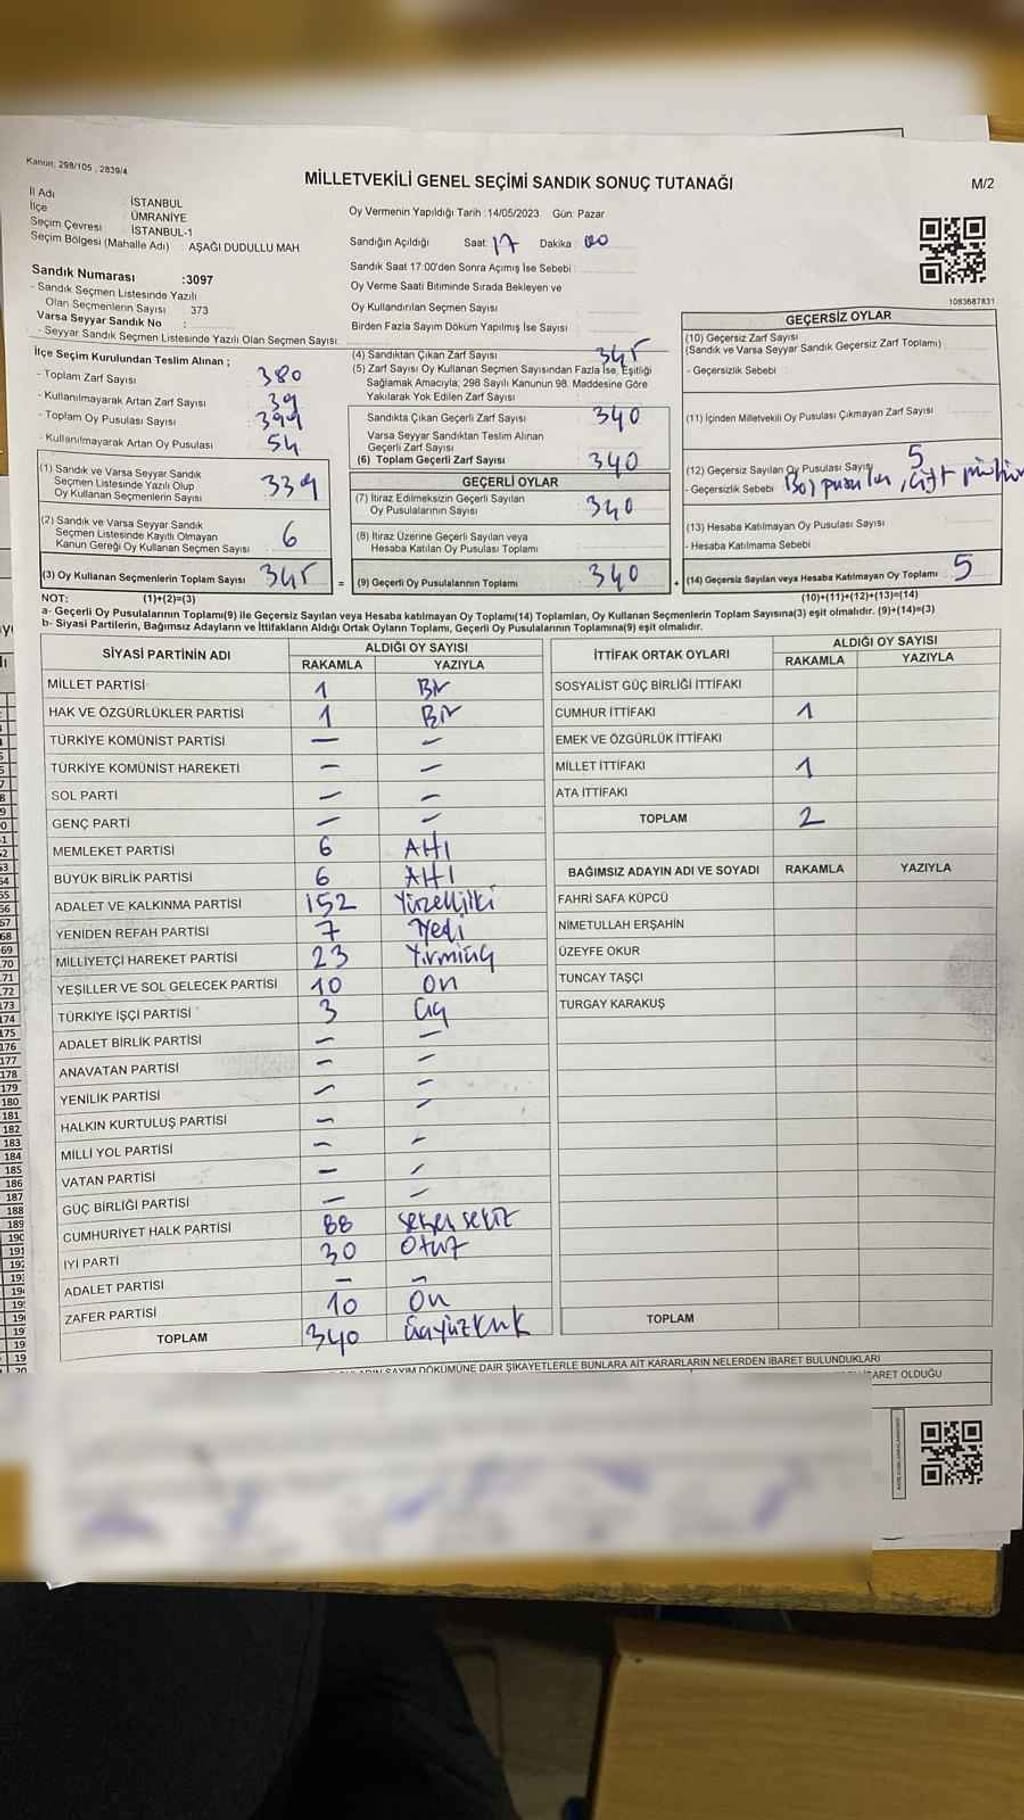 Kanun: 298/105 , 2839/4
MİLLETVEKİLİ GENEL SEÇİMİ SANDIK SONUÇ TUTANAĞI
M/2
İl Adı İSTANBUL
İlçe ÜMRANİYE
Seçim Çevresi İSTANBUL-1
Seçim Bölgesi (Mahalle Adı) AŞAĞI DUDULLU MAH
Sandık Numarası :3097
- Sandık Seçmen Listesinde Yazılı
Olan Seçmenlerin Sayısı 373
Varsa Seyyar Sandık No :
- Seyyar Sandık Seçmen Listesinde Yazılı Olan Seçmen Sayısı
Oy Vermenin Yapıldığı Tarih :14/05/2023 Gün: Pazar
Sandığın Açıldığı Saat: 17 Dakika 00
Sandık Saat 17:00'den Sonra Açımış İse Sebebi
Oy Verme Saati Bitiminde Sırada Bekleyen ve
Oy Kullandırılan Seçmen Sayısı
Birden Fazla Sayım Döküm Yapılmış İse Sayısı
1083687831
İlçe Seçim Kurulundan Teslim Alınan ;
- Toplam Zarf Sayısı 380
- Kullanılmayarak Artan Zarf Sayısı 39
- Toplam Oy Pusulası Sayısı 399
- Kullanılmayarak Artan Oy Pusulası 54
(1) Sandık ve Varsa Seyyar Sandık
Seçmen Listesinde Yazılı Olup
Oy Kullanan Seçmenlerin Sayısı 339
(2) Sandık ve Varsa Seyyar Sandık
Seçmen Listesinde Kayıtlı Olmayan
Kanun Gereği Oy Kullanan Seçmen Sayısı 6
(3) Oy Kullanan Seçmenlerin Toplam Sayısı 345
(4) Sandıktan Çıkan Zarf Sayısı 345
(5) Zarf Sayısı Oy Kullanan Seçmen Sayısından Fazla İse, Eşitliği
Sağlamak Amacıyla; 298 Sayılı Kanunun 98. Maddesine Göre
Yakılarak Yok Edilen Zarf Sayısı
Sandıkta Çıkan Geçerli Zarf Sayısı 340
Varsa Seyyar Sandıktan Teslim Alınan
Geçerli Zarf Sayısı
(6) Toplam Geçerli Zarf Sayısı 340
GEÇERLİ OYLAR
(7) İtiraz Edilmeksizin Geçerli Sayılan
Oy Pusulalarının Sayısı 340
(8) İtiraz Üzerine Geçerli Sayılan veya
Hesaba Katılan Oy Pusulası Toplamı
= (9) Geçerli Oy Pusulalarının Toplamı 340
GEÇERSİZ OYLAR
(10) Geçersiz Zarf Sayısı
(Sandık ve Varsa Seyyar Sandık Geçersiz Zarf Toplamı)
- Geçersizlik Sebebi
(11) İçinden Milletvekili Oy Pusulası Çıkmayan Zarf Sayısı
(12) Geçersiz Sayılan Oy Pusulası Sayısı 5
- Geçersizlik Sebebi Boş pusula, çift mühür
(13) Hesaba Katılmayan Oy Pusulası Sayısı
- Hesaba Katılmama Sebebi
+ (14) Geçersiz Sayılan veya Hesaba Katılmayan Oy Toplamı 5
NOT: (1)+(2)=(3) (10)+(11)+(12)+(13)=(14)
a- Geçerli Oy Pusulalarının Toplamı(9) ile Geçersiz Sayılan veya Hesaba katılmayan Oy Toplamı(14) Toplamları, Oy Kullanan Seçmenlerin Toplam Sayısına(3) eşit olmalıdır. (9)+(14)=(3)
b- Siyasi Partilerin, Bağımsız Adayların ve İttifakların Aldığı Ortak Oyların Toplamı, Geçerli Oy Pusulalarının Toplamına(9) eşit olmalıdır.
SİYASİ PARTİNİN ADI ALDIĞI OY SAYISI
RAKAMLA YAZIYLA
MİLLET PARTİSİ 1 Bir
HAK VE ÖZGÜRLÜKLER PARTİSİ 1 Bir
TÜRKİYE KOMÜNİST PARTİSİ — —
TÜRKİYE KOMÜNİST HAREKETİ — —
SOL PARTİ — —
GENÇ PARTİ — —
MEMLEKET PARTİSİ 6 AHI
BÜYÜK BİRLİK PARTİSİ 6 AHI
ADALET VE KALKINMA PARTİSİ 152 Yüzelliiki
YENİDEN REFAH PARTİSİ 7 Yedi
MİLLİYETÇİ HAREKET PARTİSİ 23 Yirmiüç
YEŞİLLER VE SOL GELECEK PARTİSİ 10 On
TÜRKİYE İŞÇİ PARTİSİ 3 Üç
ADALET BİRLİK PARTİSİ — —
ANAVATAN PARTİSİ — —
YENİLİK PARTİSİ — —
HALKIN KURTULUŞ PARTİSİ — —
MİLLİ YOL PARTİSİ — —
VATAN PARTİSİ — —
GÜÇ BİRLİĞİ PARTİSİ — —
CUMHURİYET HALK PARTİSİ 88 seksen sekiz
İYİ PARTİ 30 Otuz
ADALET PARTİSİ — —
ZAFER PARTİSİ 10 On
TOPLAM 340 üçyüzkırk
İTTİFAK ORTAK OYLARI ALDIĞI OY SAYISI
RAKAMLA YAZIYLA
SOSYALİST GÜÇ BİRLİĞİ İTTİFAKI
CUMHUR İTTİFAKI 1
EMEK VE ÖZGÜRLÜK İTTİFAKI
MİLLET İTTİFAKI 1
ATA İTTİFAKI
TOPLAM 2
BAĞIMSIZ ADAYIN ADI VE SOYADI RAKAMLA YAZIYLA
FAHRİ SAFA KÜPCÜ
NİMETULLAH ERŞAHİN
ÜZEYFE OKUR
TUNCAY TAŞÇI
TURGAY KARAKUŞ
TOPLAM
SAYIM DÖKÜMÜNE DAİR ŞİKAYETLERLE BUNLARA AİT KARARLARIN NELERDEN İBARET BULUNDUKLARI
OLDUĞU